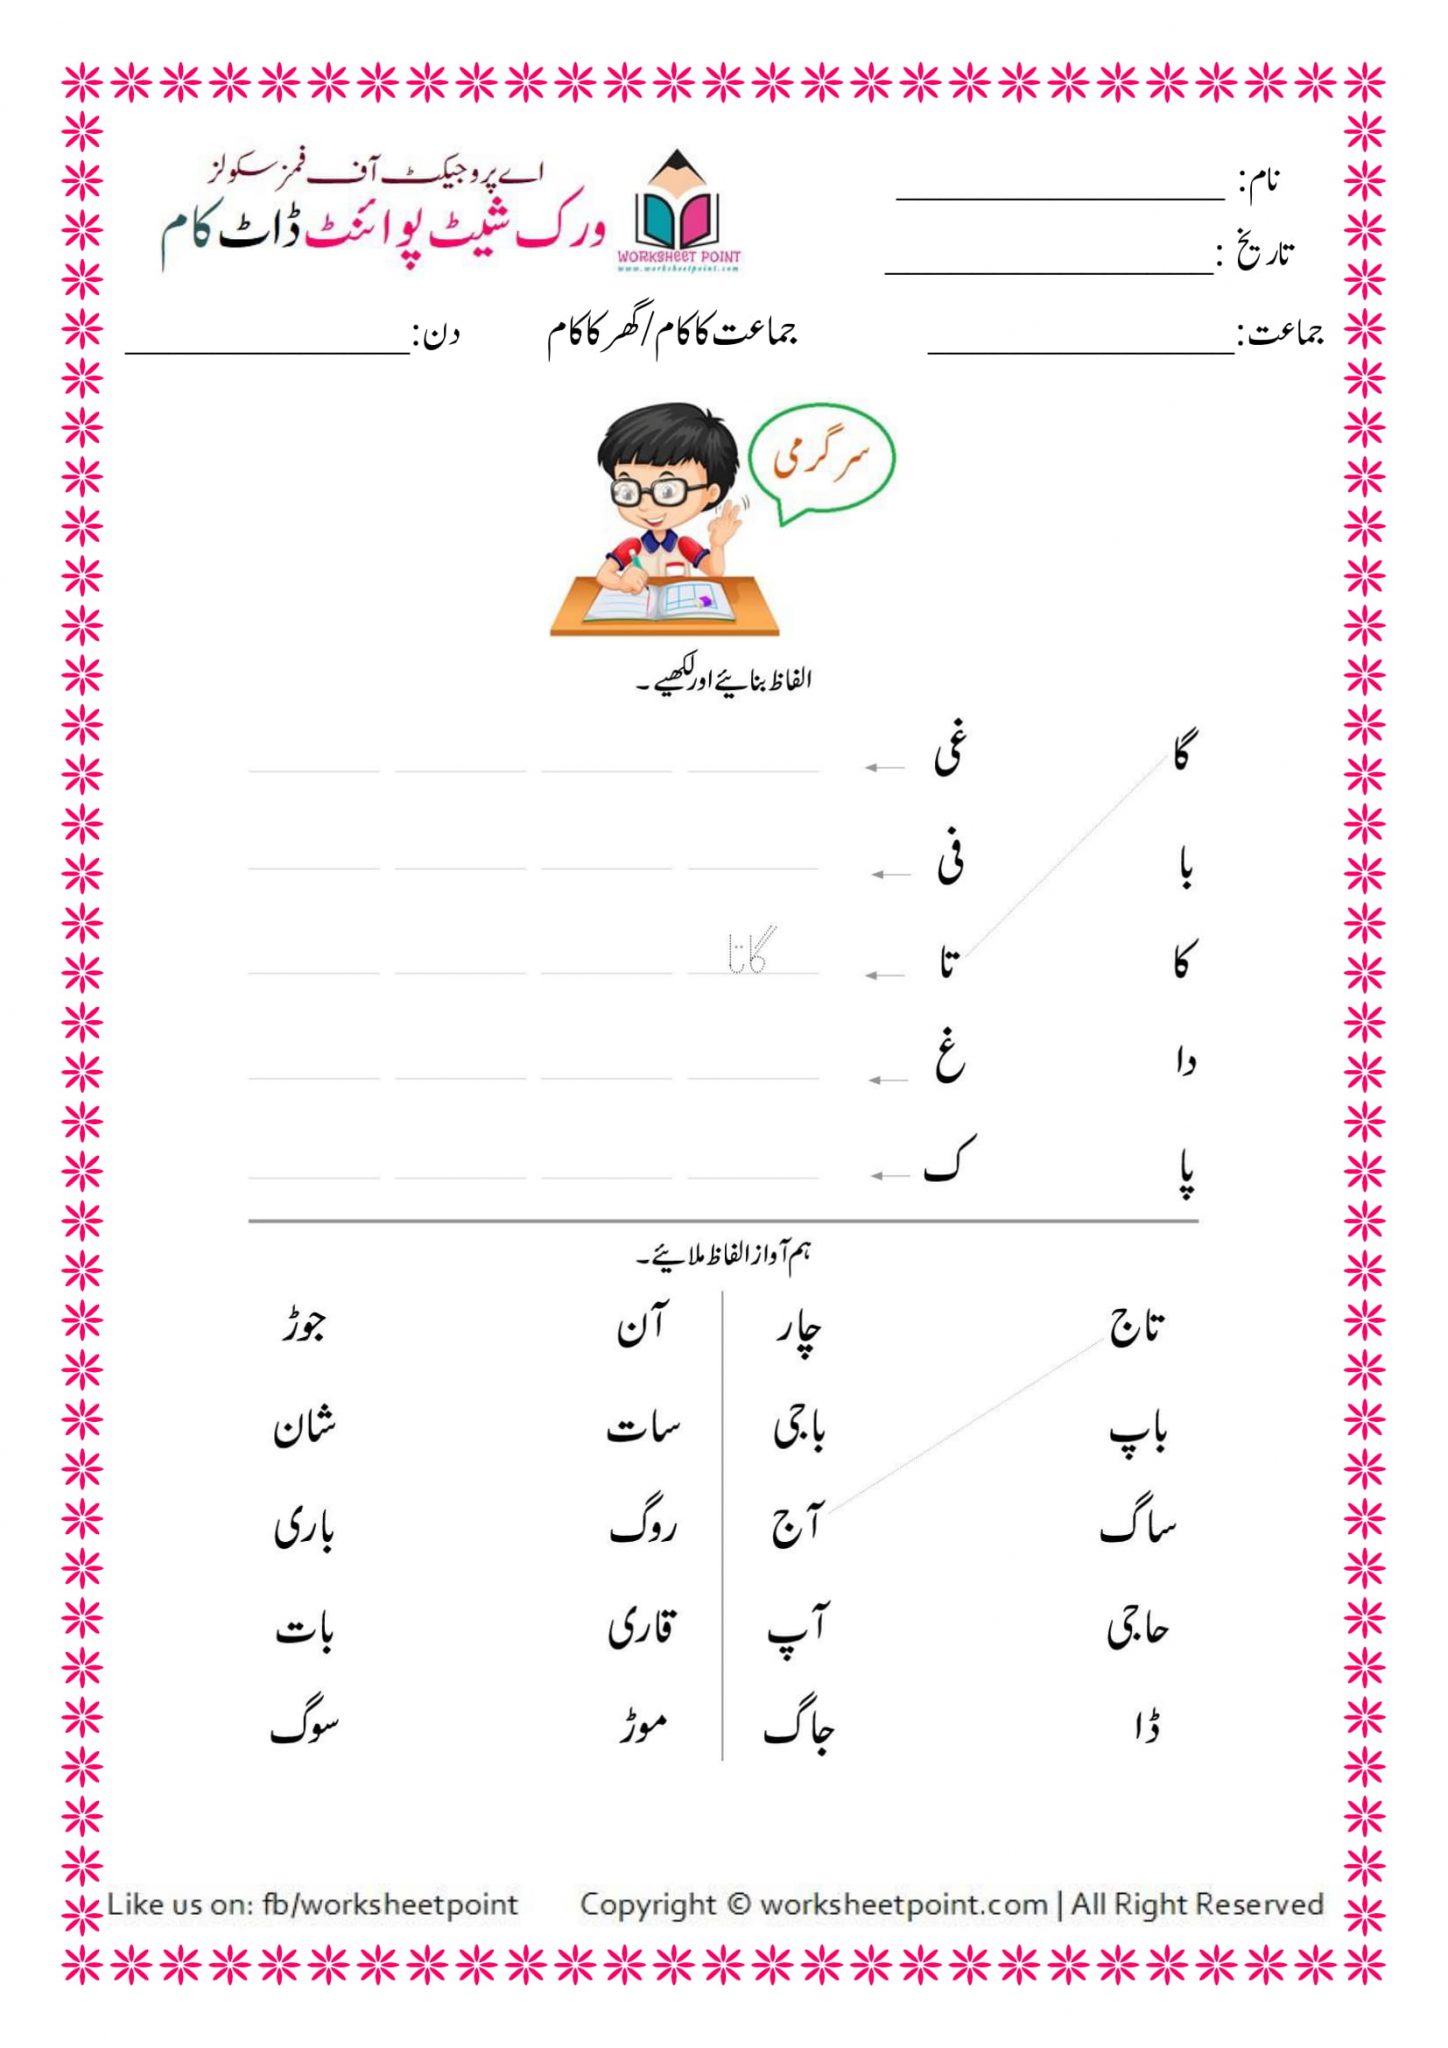 نام: ________________
اے پروجیکٹ آف فمز سکولز
تاریخ : ________________
ورک شیٹ پوائنٹ ڈاٹ کام
WORKSHEET POINT
www.worksheetpoint.com
جماعت: _______________ جماعت کا کام/گھر کا کام دن: ______________
سرگرمی
الفاظ بنائیے اور لکھیے۔
گا غی
با فی
کا تا گاتا
دا غ
پا ک
ہم آواز الفاظ ملائیے۔
تاج چار آن جوڑ
باپ باجی سات شان
ساگ آج روگ باری
حاجی آپ قاری بات
ڈا جاگ موڑ سوگ
Like us on: fb/worksheetpoint Copyright © worksheetpoint.com | All Right Reserved